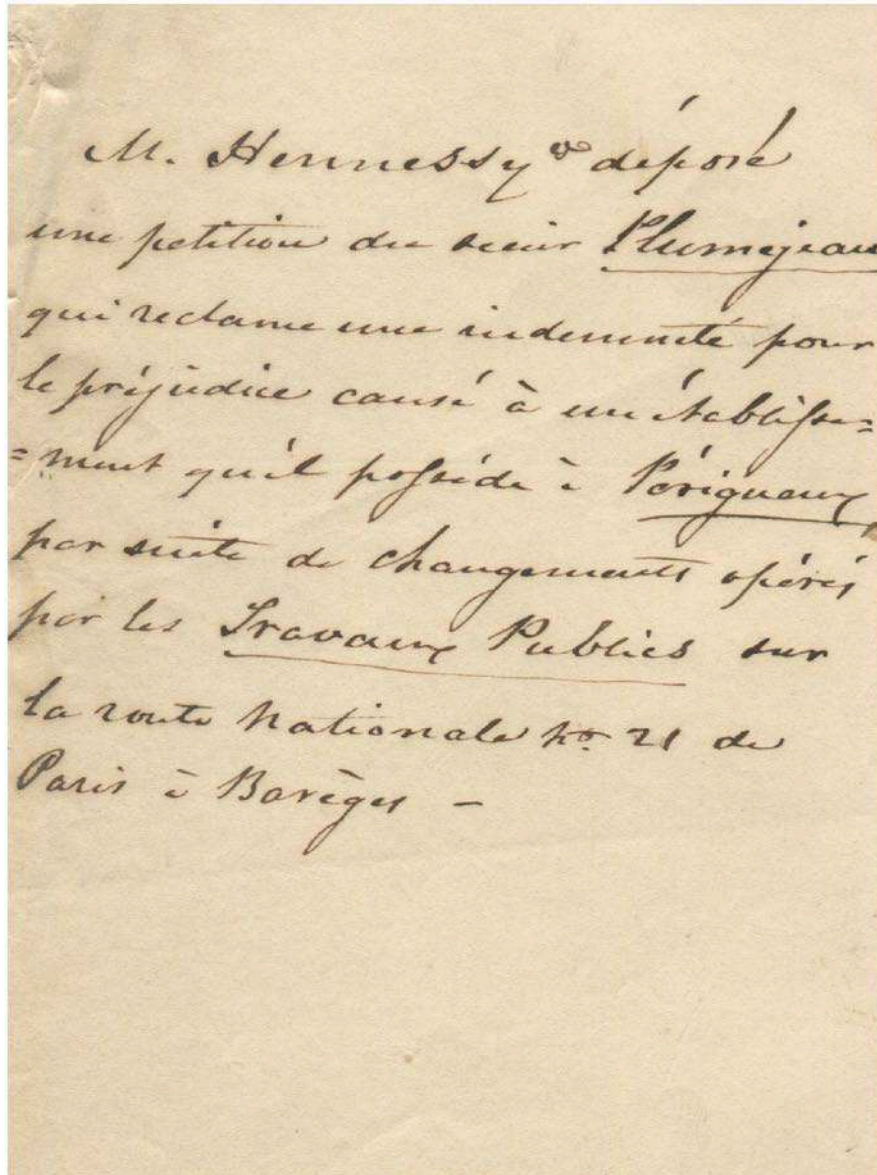 M. Hennessy a déposé
une petition du sieur Plumejeau
qui reclame une indemnité pour
le préjudice causé à un établisse=
=ment qu'il possède à Périgueux
par suite de changements opérés
par les Travaux Publics sur
la route Nationale No. 21 de
Paris à Barèges -